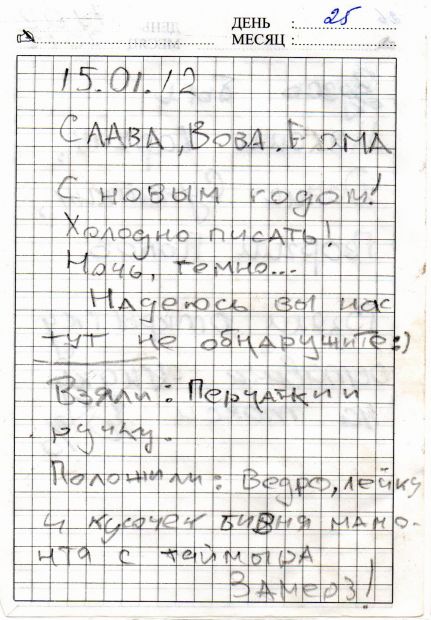 ДЕНЬ : 25
МЕСЯЦ :
15.01.12
СЛАВА, ВОВА. ЁОМА
С новым годом!
Холодно писать!
Ночь, темно...
Надеюсь вы нас
тут не обнаружите:)
Взяли: Перчатки и
ручку.
Положили: Ведро, лейку
и кусочек бивня мамо-
нта с таймыра
Замерз!